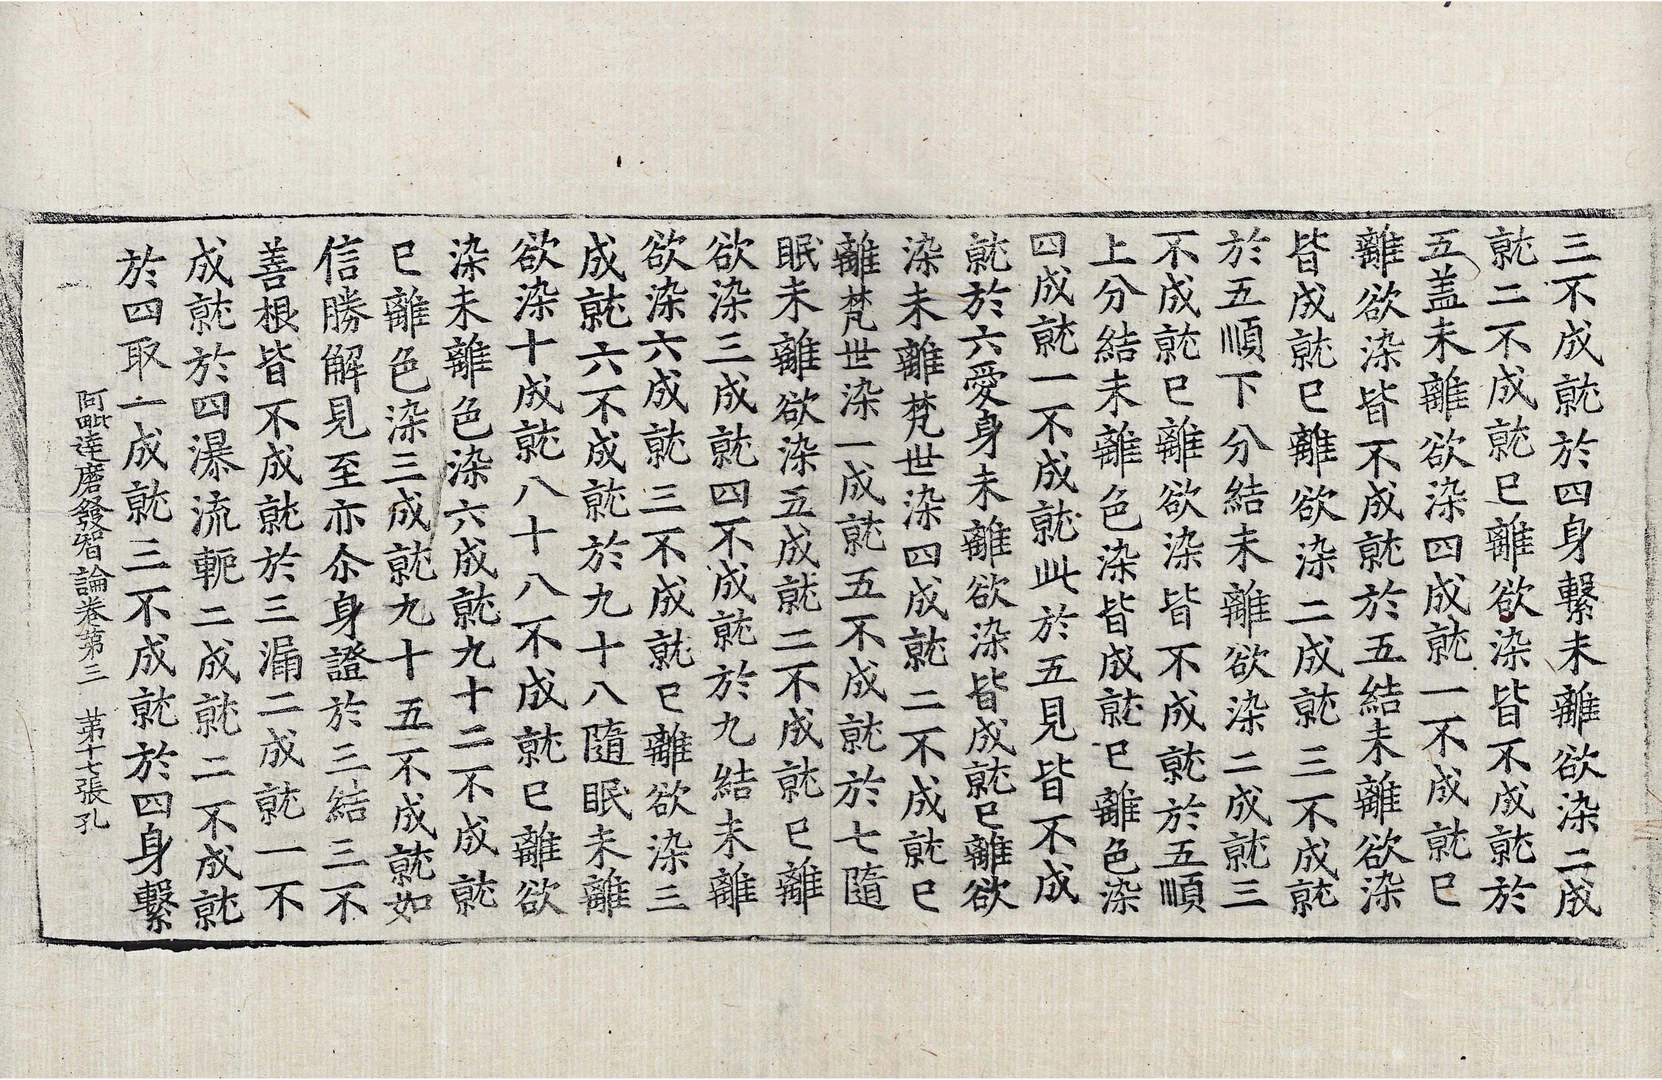 三不成就於四身繫未離欲染二成
就二不成就已離欲染皆不成就於
五盖未離欲染四成就一不成就已
離欲染皆不成就於五結未離欲染
皆成就已離欲染二成就三不成就
於五順下分結未離欲染二成就三
不成就已離欲染皆不成就於五順
上分結未離色染皆成就已離色染
四成就一不成就此於五見皆不成
就於六愛身未離欲染皆成就已離欲
染未離梵世染四成就二不成就已
離梵世染一成就五不成就於七隨
眠未離欲染五成就二不成就已離
欲染三成就四不成就於九結未離
欲染六成就三不成就已離欲染三
成就六不成就於九十八隨眠未離
欲染十成就八十八不成就已離欲
染未離色染六成就九十二不成就
已離色染三成就九十五不成就如
信勝解見至亦尒身證於三結三不
善根皆不成就於三漏二成就一不
成就於四瀑流軛二成就二不成就
於四取一成就三不成就於四身繫
阿毗達磨發智論卷第三 苐十七張 孔